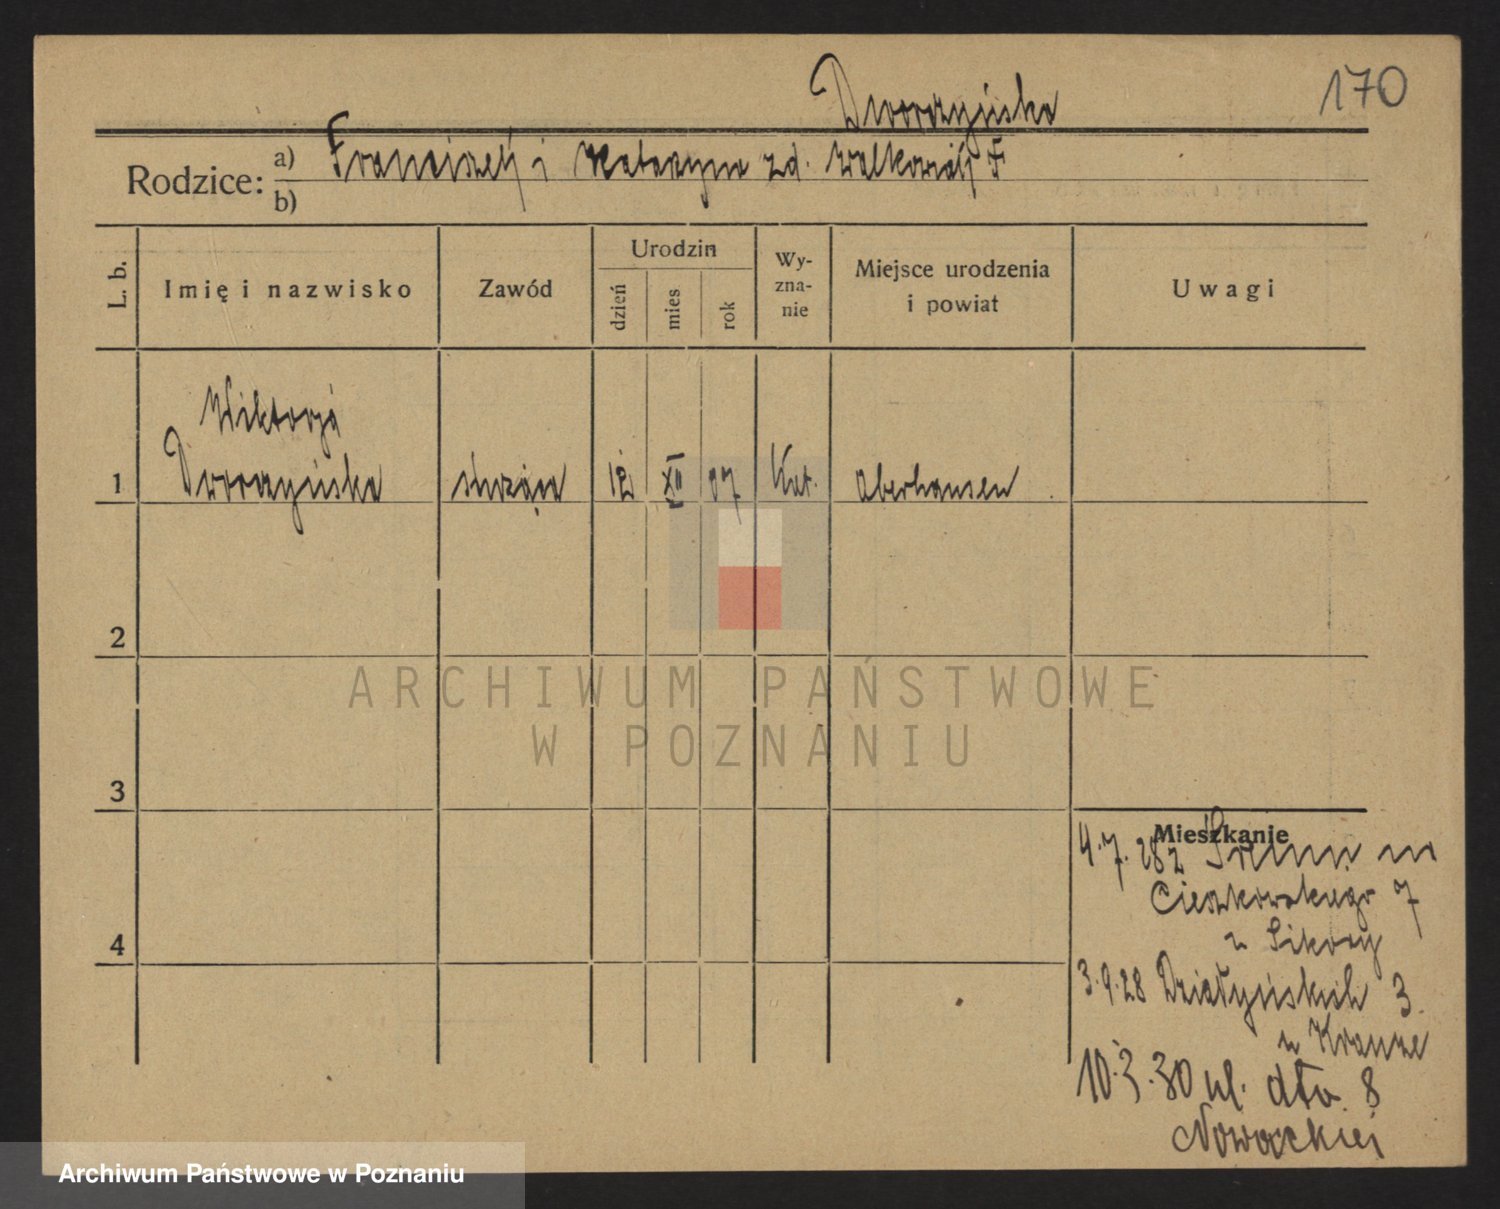 170
Dworzyńska
Rodzice: a) Franciszek i Katarzyna zd. Walkowiak
b)
L. b.
Imię i nazwisko
Zawód
Urodzin
dzień
mies
rok
Wy-
zna-
nie
Miejsce urodzenia
i powiat
Uwagi
Wiktorja
1 Dworzyńska służąca 12 XII 07 Kat. Oberhausen
2
3
4
Mieszkanie
4.7.28 z Śremu
Cieszkowskiego 7
u Sikory
3.9.28 Działyńskich 3
u Krauze
10.3.30 ul. dto 8
Nowackiej
ARCHIWUM PAŃSTWOWE
W POZNANIU
Archiwum Państwowe w Poznaniu